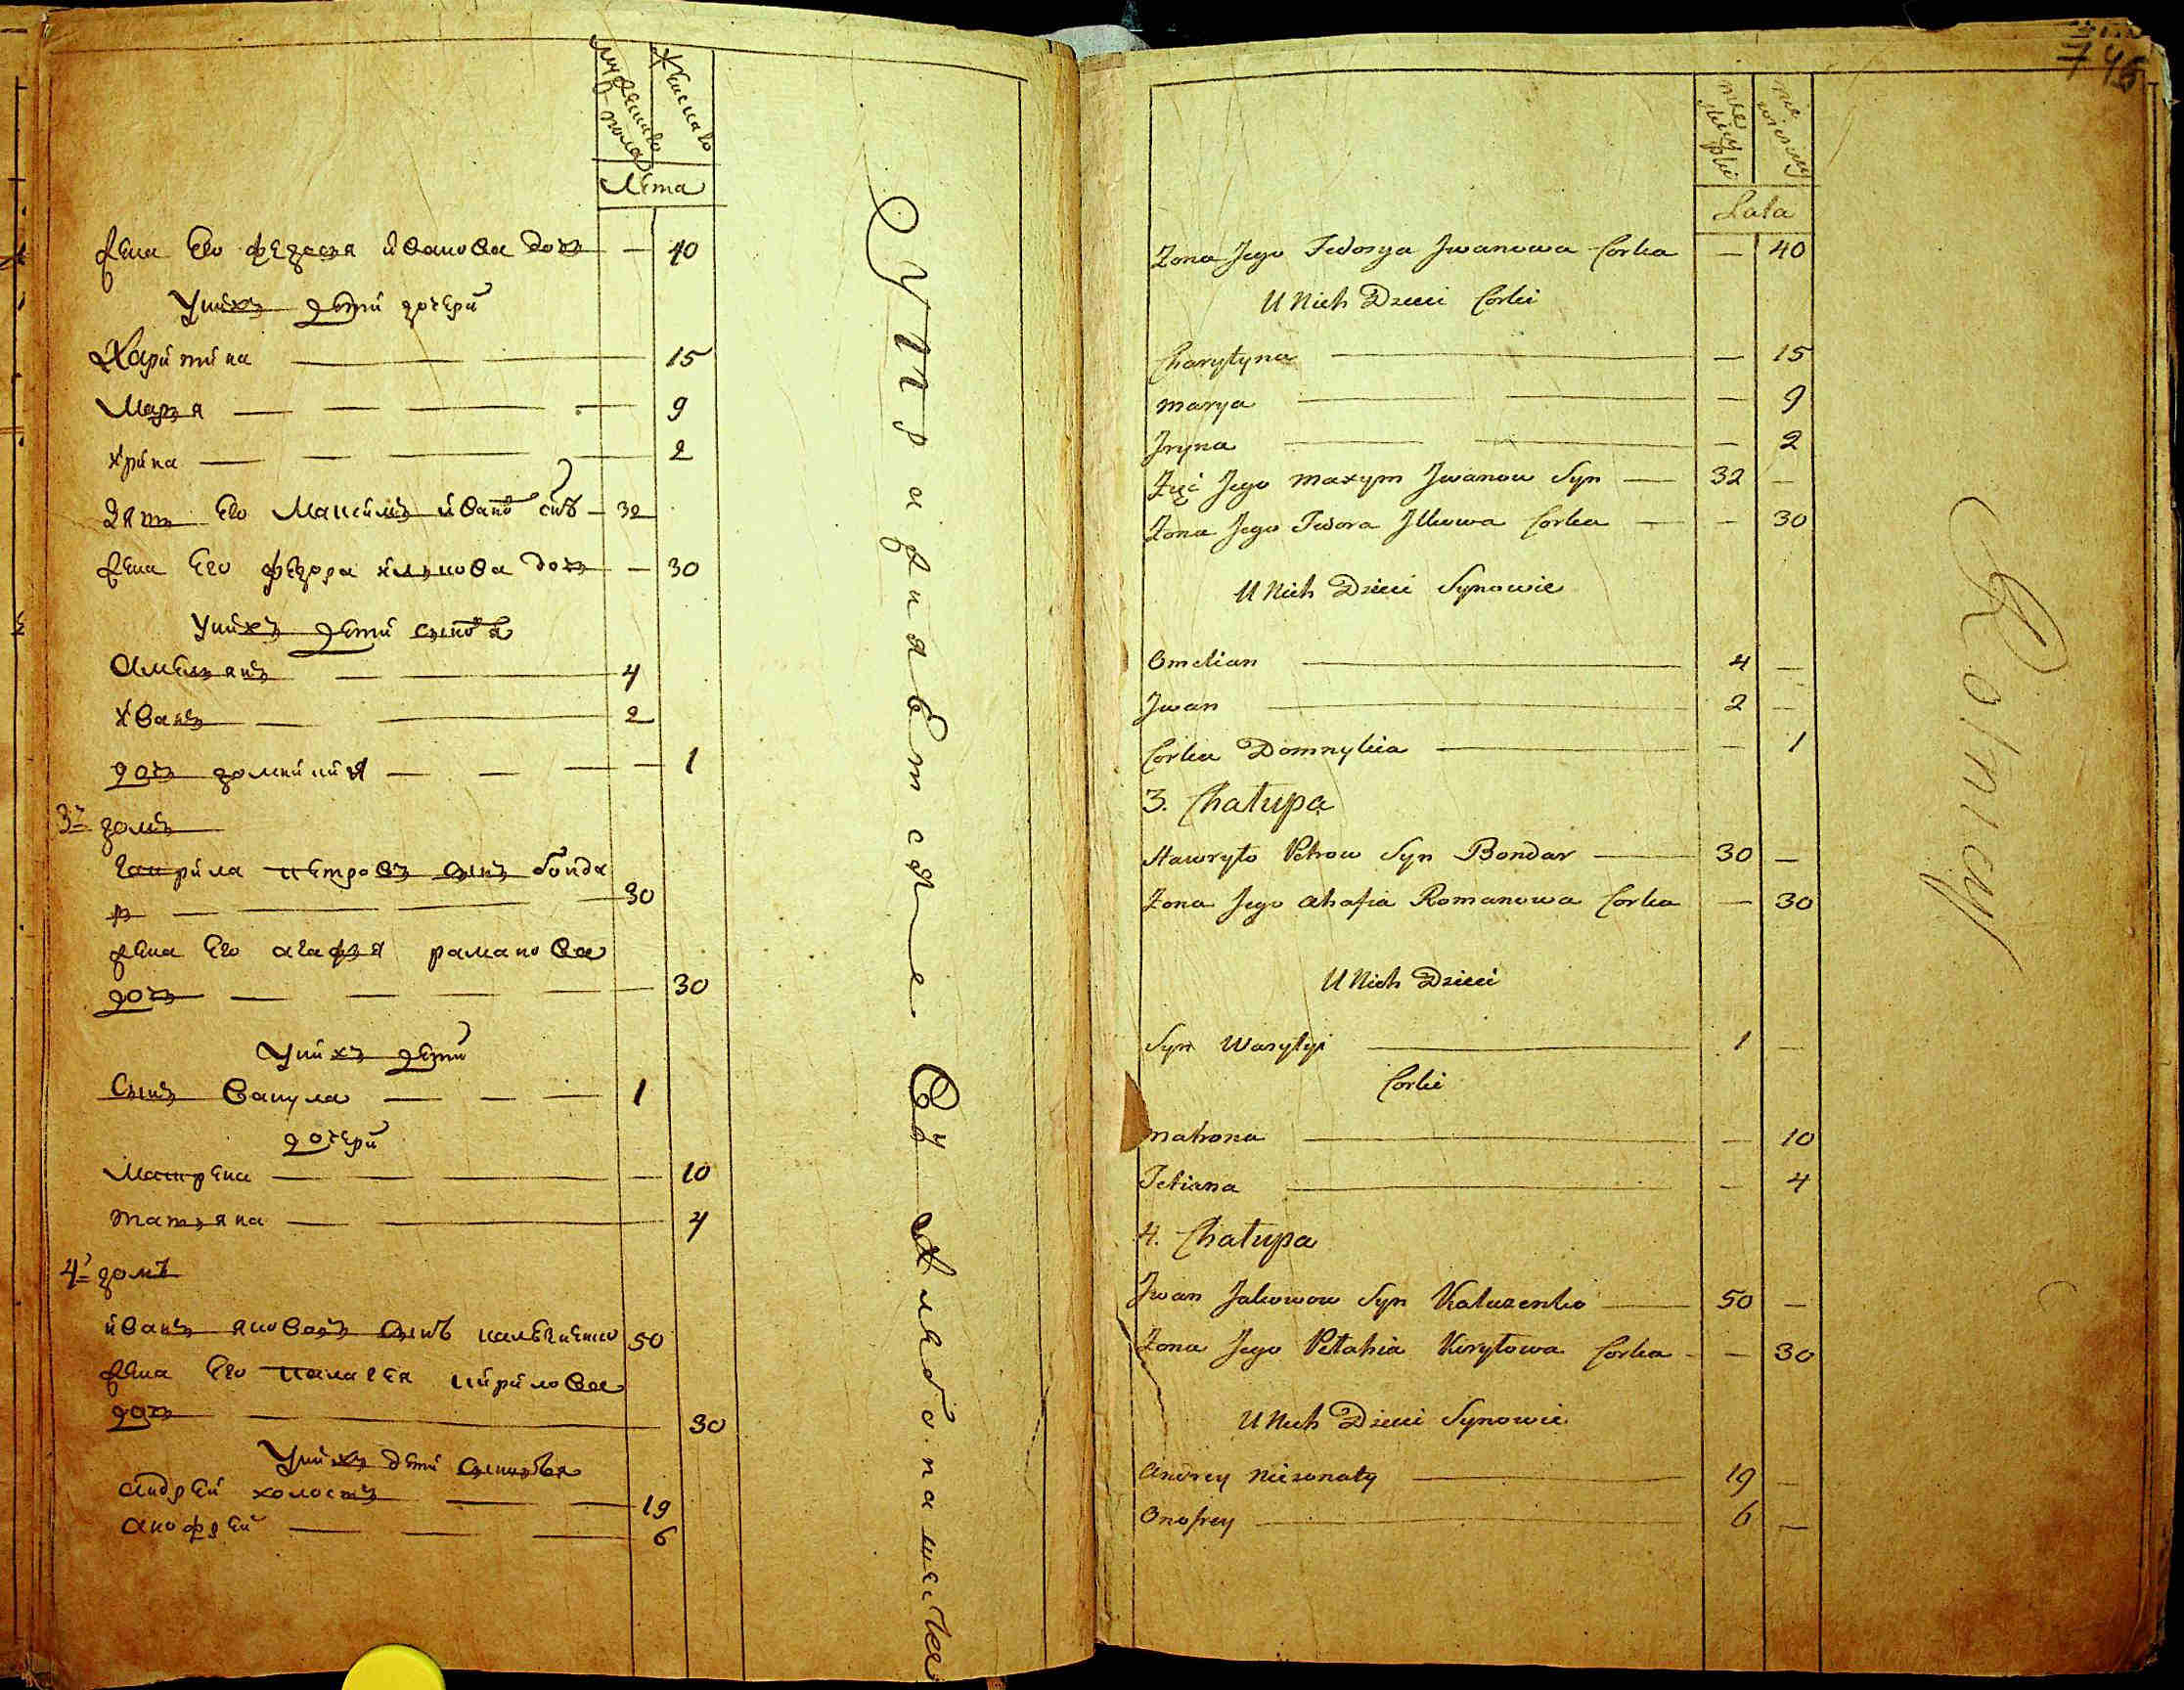 мужеска пола
женска
Лета
жена его федосья иванова дочь — 40
у них дети дочери
Харитина — 15
Марья — 9
Ирина — 2
зять его Максимъ ивановъ снъ — 32
жена его федора илькова дочь — 30
у них дети сыновя
Амельянъ — 4
Иванъ — 2
дочь домникия — 1
3й домъ
гаврила петровъ сынъ бонда
рь — 30
жена его агафья раманова
дочь — 30
у нихъ дети
Сынъ Вакула — 1
дочери
Матрена — 10
татьяна — 4
4й домъ
иванъ яковъ сынъ 50
жена его палагея кирилова
дочь — 30
у нихъ дети сыновья
андрей холостъ — 19
анофрей — 6
Упражняется въ хлебопашестве
745
męskiey płci
Lata
Żona Jego Fedosya Jwanowa Corka — 40
U Nich Dzieci Corki
Charytyna — 15
Marya — 9
Jryna — 2
Zięć Jego Maxym Jwanow Syn — 32 —
Żona Jego Fedora Jlkowa Corka — — 30
U Nich Dzieci Synowie
Omelian — 4 —
Jwan — 2 —
Corka Domnykia — — 1
3. Chałupa
Hawryło Petrow Syn Bondar — 30 —
Żona Jego Ahafia Romanowa Corka — 30
U Nich Dzieci
Syn Wasylyi — 1 —
Corki
Matrona — — 10
Tetiana — — 4
4. Chałupa
Jwan Jakowow Syn Kałuzenko — 50 —
Żona Jego Pełahia Kiryłowa Corka — — 30
U Nich Dzieci Synowie
Andrey Nieżonaty — 19 —
Onofrey — 6 —
Rolnicy